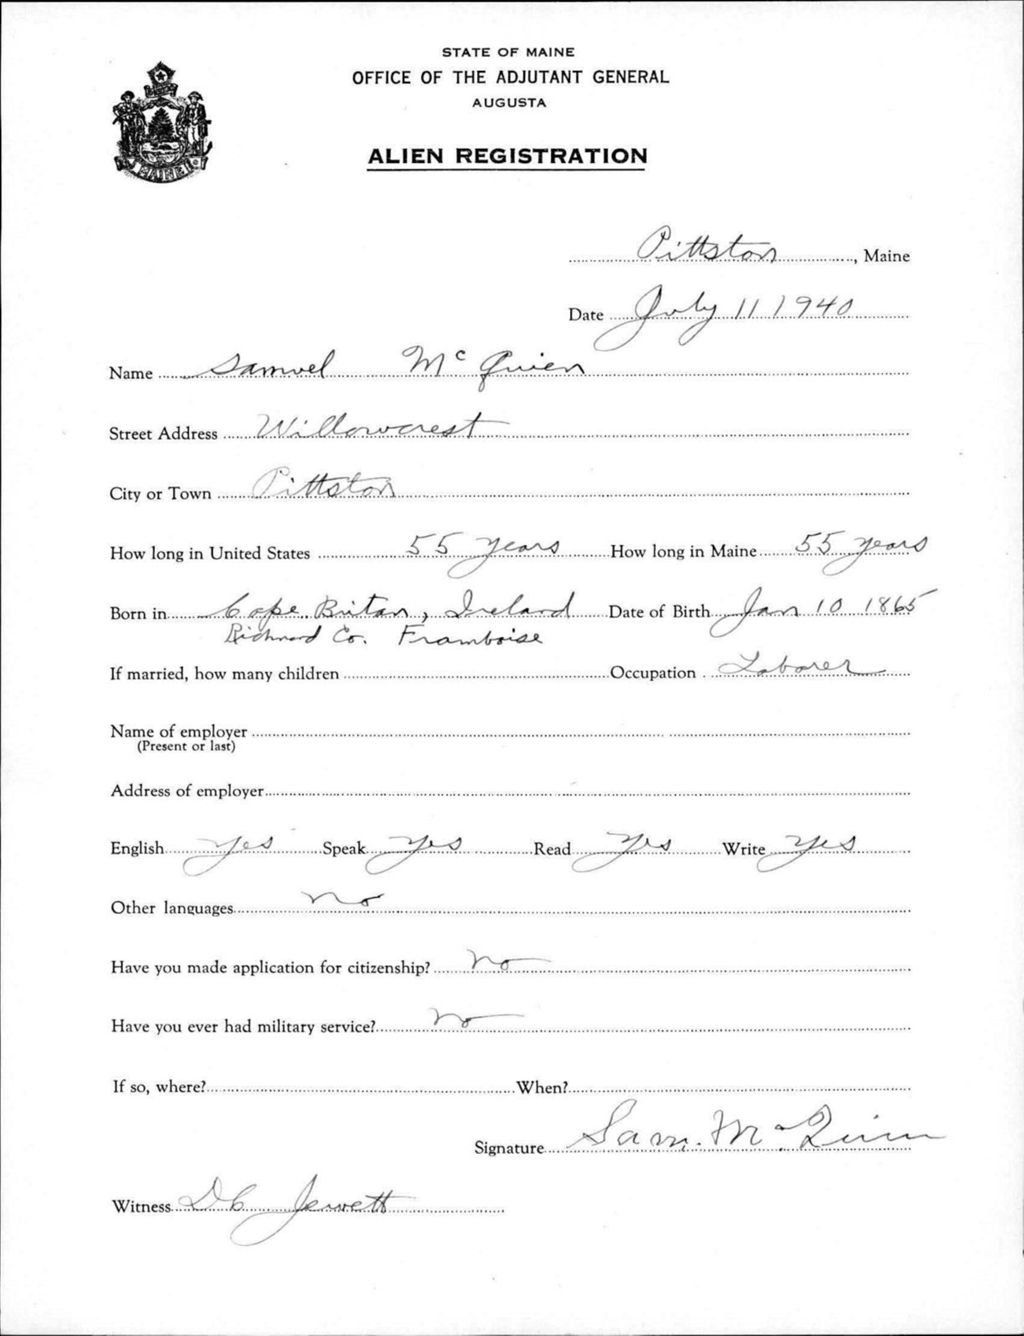 STATE OF MAINE
OFFICE OF THE ADJUTANT GENERAL
AUGUSTA
ALIEN REGISTRATION
MAINE
Pittston, Maine
Date July 11 1940
Name Samuel McQuien
Street Address Willowcrest
City or Town Pittston
How long in United States 55 years How long in Maine 55 years
Born in Cape Britan, Ireland Date of Birth Jan 10 1865
Richmond Co. Framboise
If married, how many children Occupation Laborer
Name of employer
(Present or last)
Address of employer
English yes Speak yes Read yes Write yes
Other languages no
Have you made application for citizenship? no
Have you ever had military service? no
If so, where? When?
Signature Sam. McQuinn
Witness DC Jewett